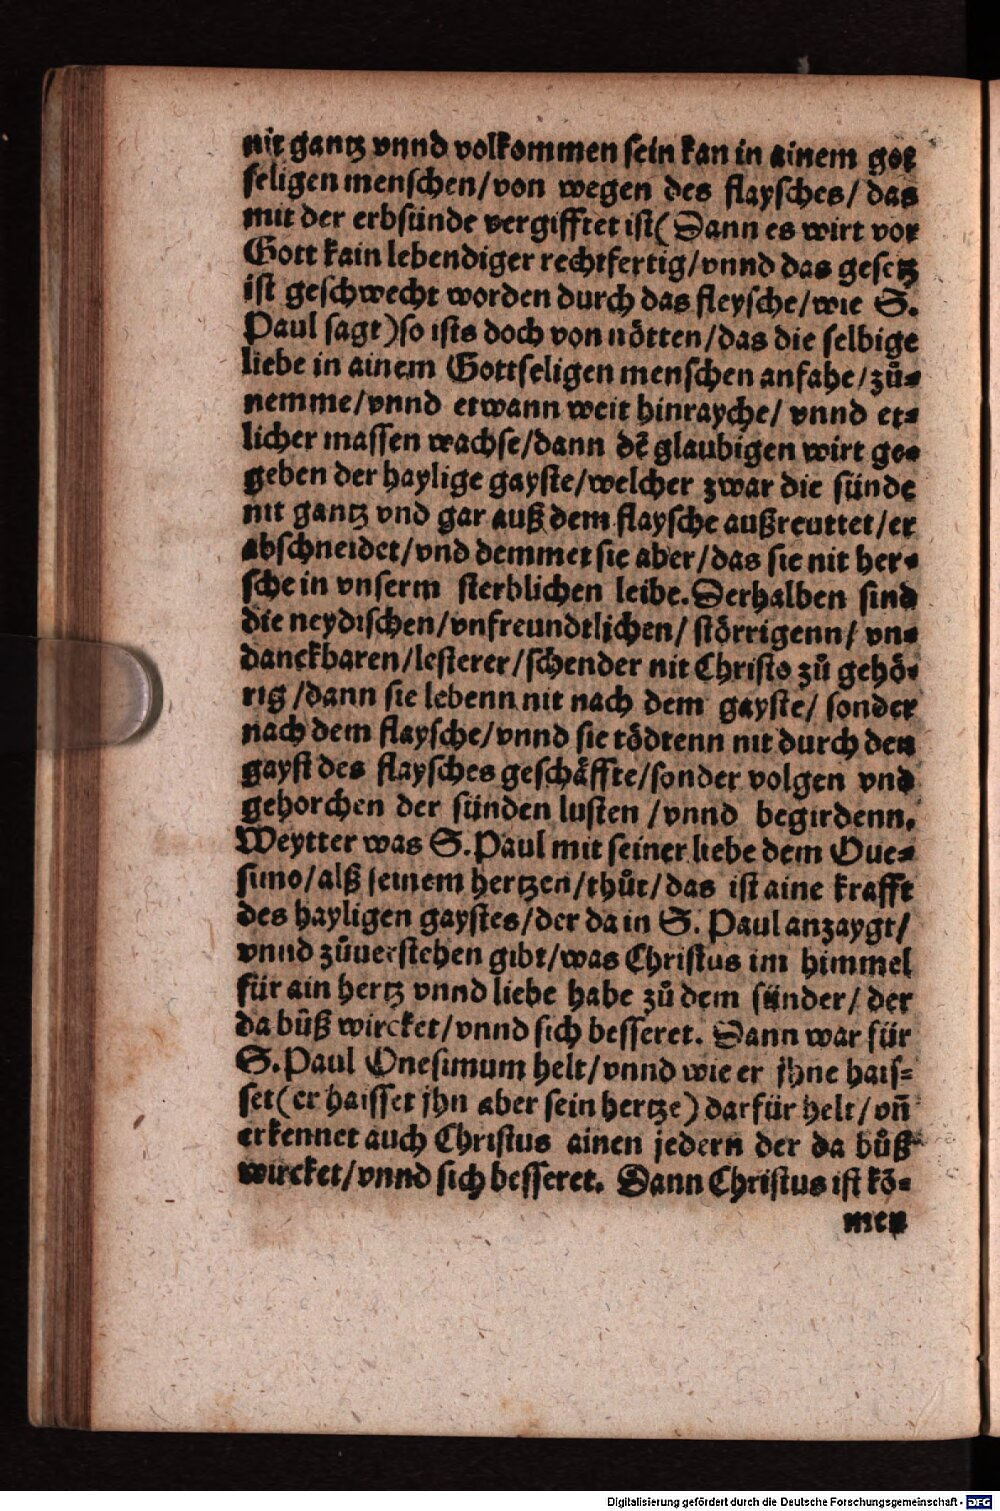 nit gantz vnnd volkommen sein kan in ainem got
seligen menschen/von wegen des flaysches/ das
mit der erbsünde vergifftet ist( Dann es wirt vor
Gott kain lebendiger rechtfertig/vnnd das gesetz
ist geschwecht worden durch das fleysche/wie S.
Paul sagt)so ists doch von nötten/das die selbige
liebe in ainem Gottseligen menschen anfahe/zů⸗
nemme/vnnd etwann weit hinrayche/ vnnd et⸗
licher massen wachse/dann dē glaubigen wirt ge⸗
geben der haylige gayste/welcher zwar die sünde
nit gantz vnd gar auß dem flaysche außreuttet/er
abschneidet/vnd demmet sie aber/das sie nit her⸗
sche in vnserm sterblichen leibe. Derhalben sind
die neydischen/vnfreundtlichen/ störrigenn/ vn⸗
danckbaren/lesterer/schender nit Christo zů gehö⸗
rig /dann sie lebenn nit nach dem gayste/ sonder
nach dem flaysche/vnnd sie tödtenn nit durch den
gayst des flaysches geschäffte/sonder volgen vnd
gehorchen der sünden lusten /vnnd begirdenn.
Weytter was S. Paul mit seiner liebe dem One⸗
simo/alß seinem hertzen/thůt/das ist aine krafft
des hayligen gaystes/der da in S. Paul anzaygt/
vnnd zůverstehen gibt/was Christus im himmel
für ain hertz vnnd liebe habe zů dem sünder/ der
da bůß wircket/vnnd sich besseret. Dann war für
S. Paul Onesimum helt/vnnd wie er jhne hais⸗
set(er haisset jhn aber sein hertze) darfür helt/vñ
erkennet auch Christus ainen jedern der da bůß
wircket/vnnd sich besseret. Dann Christus ist kō⸗
men
Digitalisierung gefördert durch die Deutsche Forschungsgemeinschaft - DFG